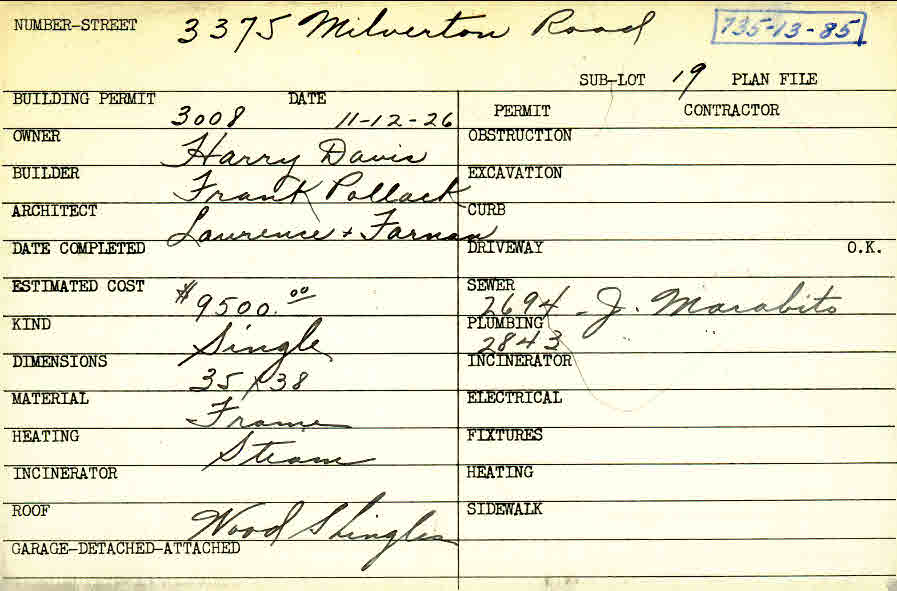 NUMBER-STREET 3375 Milverton Road 735-13-85
SUB-LOT 19 PLAN FILE
BUILDING PERMIT 3008 DATE 11-12-26
PERMIT CONTRACTOR
OWNER Harry Davis
OBSTRUCTION
BUILDER Frank Pollack
EXCAVATION
ARCHITECT Lawrence + Farnan
CURB
DATE COMPLETED
DRIVEWAY O.K.
ESTIMATED COST $9500.00
SEWER 2694 - J. Marabito
KIND Single
PLUMBING 2843
DIMENSIONS 35 x 38
INCINERATOR
MATERIAL Frame
ELECTRICAL
HEATING Steam
FIXTURES
INCINERATOR
HEATING
ROOF Wood Shingles
SIDEWALK
GARAGE-DETACHED-ATTACHED